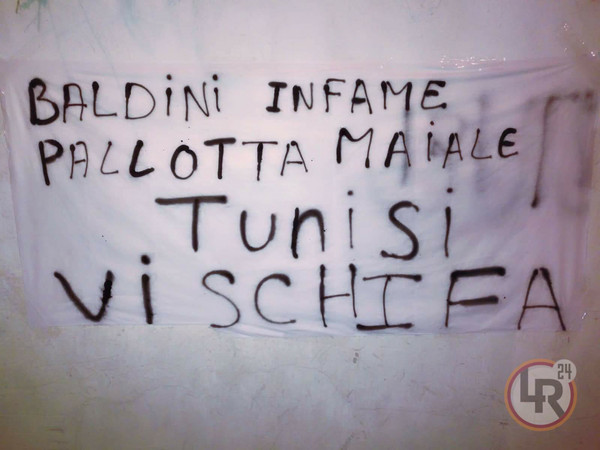 BALDiNi INFAME
PALLOTTA MAiALE
TuniSi
Vi SCHIFA
LR 24